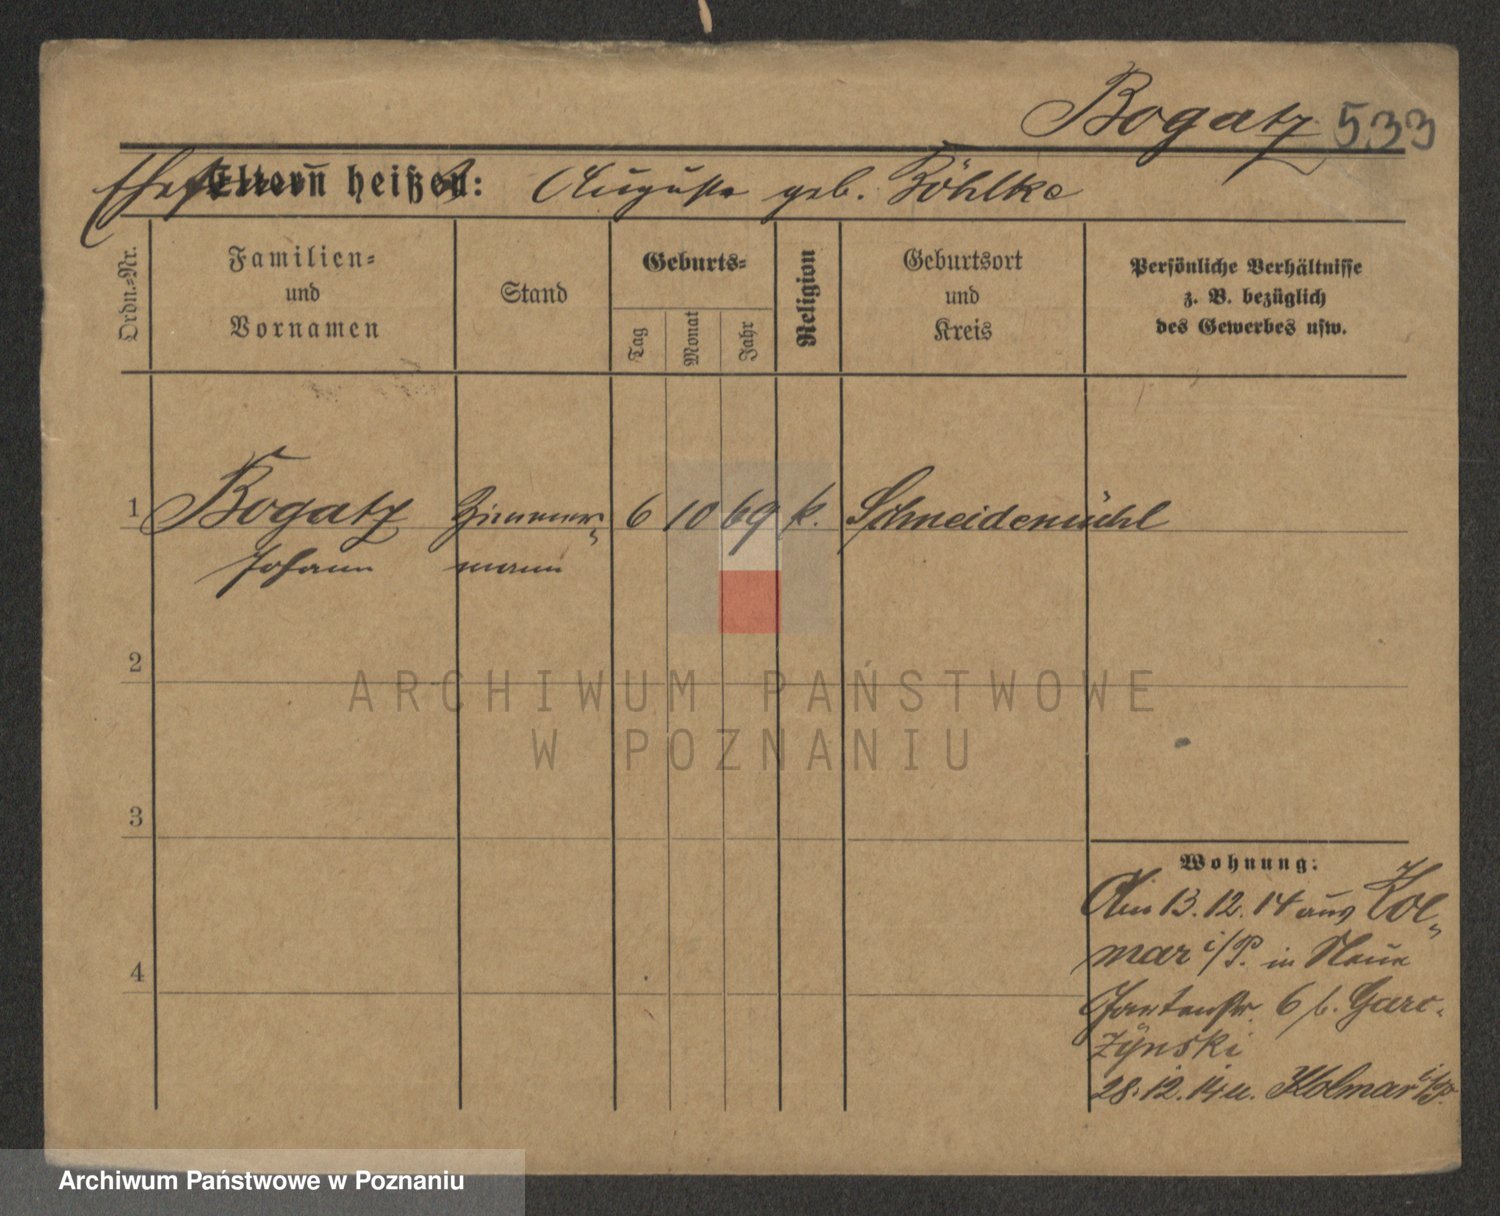 Bogatz 533
Ehefr Eltern heißen: Auguste geb. Böhlke
Ordn.-Nr.
Familien-
und
Vornamen
Stand
Geburts-
Tag
Monat
Jahr
Religion
Geburtsort
und
Kreis
Persönliche Verhältnisse
z. B. bezüglich
des Gewerbes usw.
1 Bogatz Zimmer- 6 10 69 k. Schneidemühl
Johann mann
2
ARCHIWUM PAŃSTWOWE
W POZNANIU
3
Wohnung:
Am 13.12.14 aus Kol-
mar i/P. in Neue
4
Gartenstr. 6 b. Garc-
zÿnski
28.12.14 n. Kolmar i/P.
Archiwum Państwowe w Poznaniu